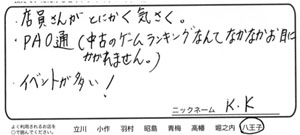 ・店員さんがとにかく気さく。
・PAO通(中古のゲームランキングなんてなかなかお目に
かかれません。)
・イベントが多い!
ニックネーム K.K
よく利用されるお店を
立川 小作 羽村 昭島 青梅 高幡 堀之内 八王子